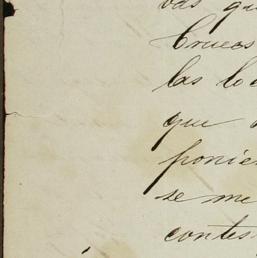 vas qu
Cruces
las lo
que
ponie
se me
contes